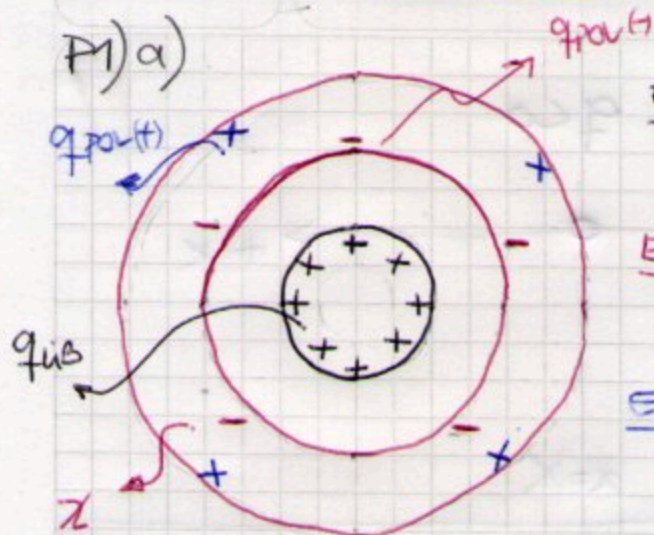 P1) a)
q POL(-)
q POL(+)
q LIB
χ